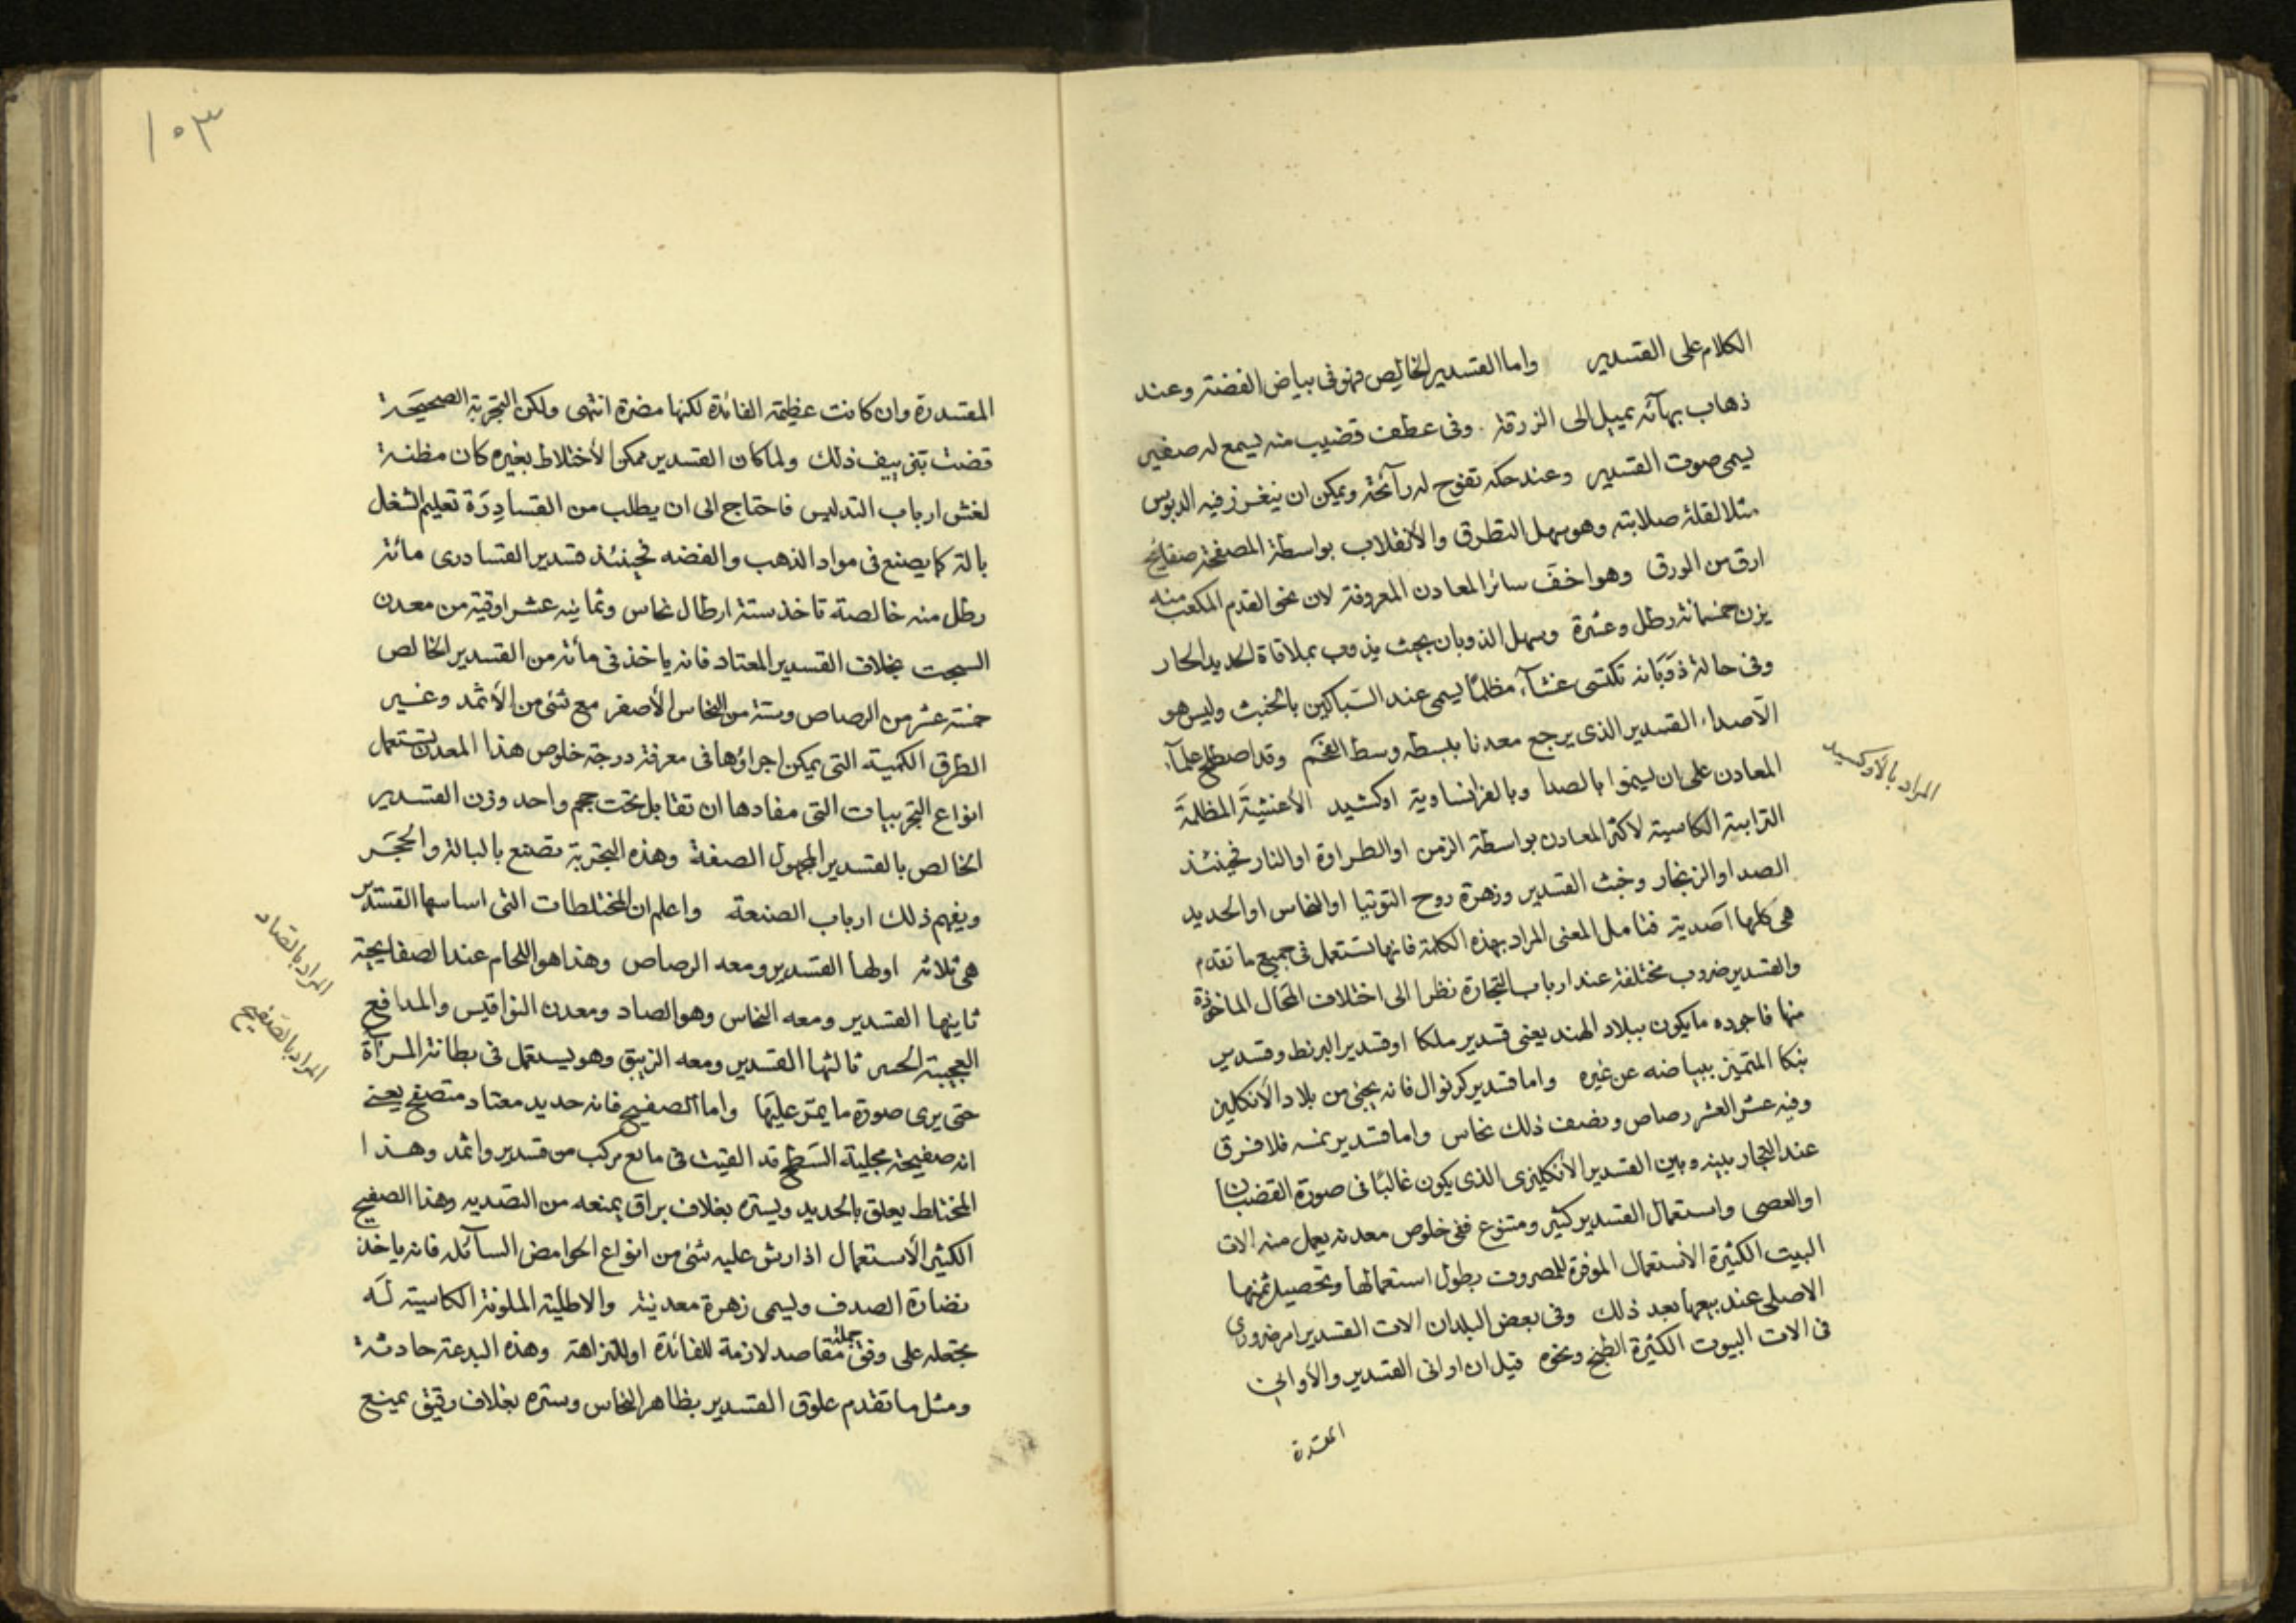 الكلام على القسدير واما القسدير الخالص فهو فى بياض الفضة وعند
ذهاب بهآئه يميل الى الزرقة . وفى عطف قضيب منه ليسمع له صغير
يسمى صوت القسدير وعند حكه تفوح له رآئحة ويمكن ان ينغرز فيه الدبوس
مثلا لقلة صلابته وهو سهل التطرق والأنقلاب بواسطة المصفحة صفايح
ارق من الورق وهو اخف سائر المعادن المعروفة لان نحو القدم المكعب منه
يزن خمسمائة رطل وعشرة وسهل الذوبان بحيث يذوب بملاقاة الحديد الحار
وفى حالة ذوَبَانه تكتسى غشآء مظلمًا يسمى عند السباكين بالخبث وليس هو
الاصداء القسدير الذى يرجع معدنا ببسطه وسط الفحم وقد اصطلح علمآء
المعادن على ان ليسموا بالصدا وبالفرانساوية اوكشيد الأغشيةَ المظلمةَ
الترابية الكلسية لاكثر المعادن بواسطة الزمن او الطراوة او النار فحينئذ
الصدا والزنجار وخبث القسدير وزهرة روح التوتيا او النحاس او الحديد
هى كلها اصدية فتامل المعنى المراد بهذه الكلمة فانها تستعمل فى جميع ما تقدم
والقسدير ضروب مختلفة عند ارباب التجارة نظرا الى اختلاف المحال الماخوذة
منها فاجوده ما يكون ببلاد الهند يعنى قسدير ملكا او قسدير البرنط وقسدير
بنكا المتميز ببياضه عن غيره واما قسدير كرنوال فانه يجئ من بلاد الأنكليز
وفيه عشر العشر رصاص ونصف ذلك نحاس واما قسدير نمسه فلا فرق
عند التجار بينه وبين القسدير الأنكليزى الذى يكون غالبًا فى صورة القضبان
او العصى واستعمال القسدير كثير ومتنوع ففى خلوص معدنه يعمل منه الات
البيت الكثيرة الأستعمال الموفرة للمصروف بطول استعمالها وتحصيل ثمنها
الاصلى عند بيعها بعد ذلك وفى بعض البلدان الات القسدير امر ضرورى
فى الات البيوت الكثيرة الطبخ ونحوه قيل ان اوانى القسدير والأوانى
المقسدرة
المراد بالأوكسيد
١٠٣
المقسدرة وان كانت عظيمة الفائدة لكنها مضرة انتهى ولكن التجربة الصحيحَة
قضت بتزييف ذلك ولما كان القسدير ممكن الأختلاط بغيره كان مظنة
لغش ارباب التدليس فاحتاج الى ان يطلب من القسادِرَة تعليم الشغل
بالة كما يصنع فى مواد الذهب والفضه فحينئذ قسدير القسادرى مائة
رطل منه خالصة تاخذ ستة ارطال نحاس وثمانيه عشر اوقية من معدن
السبجت بخلاف القسدير المعتاد فانه ياخذ فى مائة من القسدير الخالص
خمسة عشر من الرصاص وستة من النحاس الأصفر مع شئ من الأثمد وغير
الطرق الكمية التى يمكن اجراؤها فى معرفة درجة خلوص هذا المعدن تستعمل
انواع التجريبات التى مفادها ان تقابل تحت حجم واحد وزن القسدير
الخالص بالقسدير المجهول الصفة وهذه التجربة تصنع بالبالة والحجَر
ويفهم ذلك ارباب الصنعة واعلم ان المختلطات التى اساسها القسدير
هى ثلاثة اولها القسدير ومعه الرصاص وهذا هو اللحام عند الصفايحية
ثانيها القسدير ومعه النحاس وهو الصاد ومعدن النواقيس والمدافع
العجيبة الحس ثالثها القسدير ومعه الزيبق وهو يستعمل فى بطانة المرآة
حتى يرى صورة ما يمر عليها واما الصفيح فانه حديد معتاد متصفح يعنى
انه صفيحة مجلية السَطح قد القيت فى مائع مركب من قسدير واثمد وهذا
المختلط يعلق بالحديد ويستره بغلاف براق يمنعه من التصديه وهذا الصفيح
الكثير الأستعمال اذا رش عليه شئ من انواع الحوامض السآئله فانه ياخذ
نضارة الصدف وليسمى زهرة معدنية والاطلية الملونة الكلسية لَه
تجعله على وفق جملة مقاصد لازمة للفائدة او للنزاهة وهذه البدعة حادثة
ومثل ما تقدم علوق القسدير بظاهر النحاس وستره بغلاف رقيق يمنع
المراد بالصاد
المراد بالصفيح